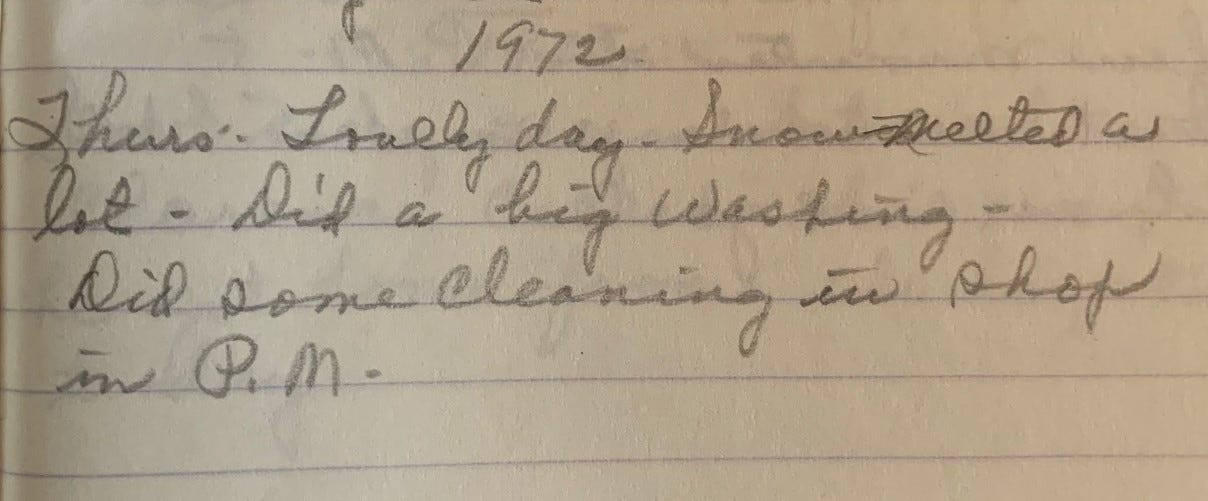 1972
Thurs. Lovely day. Snow melted a
lot - Did a big washing -
Did some cleaning in shop
in P.M.